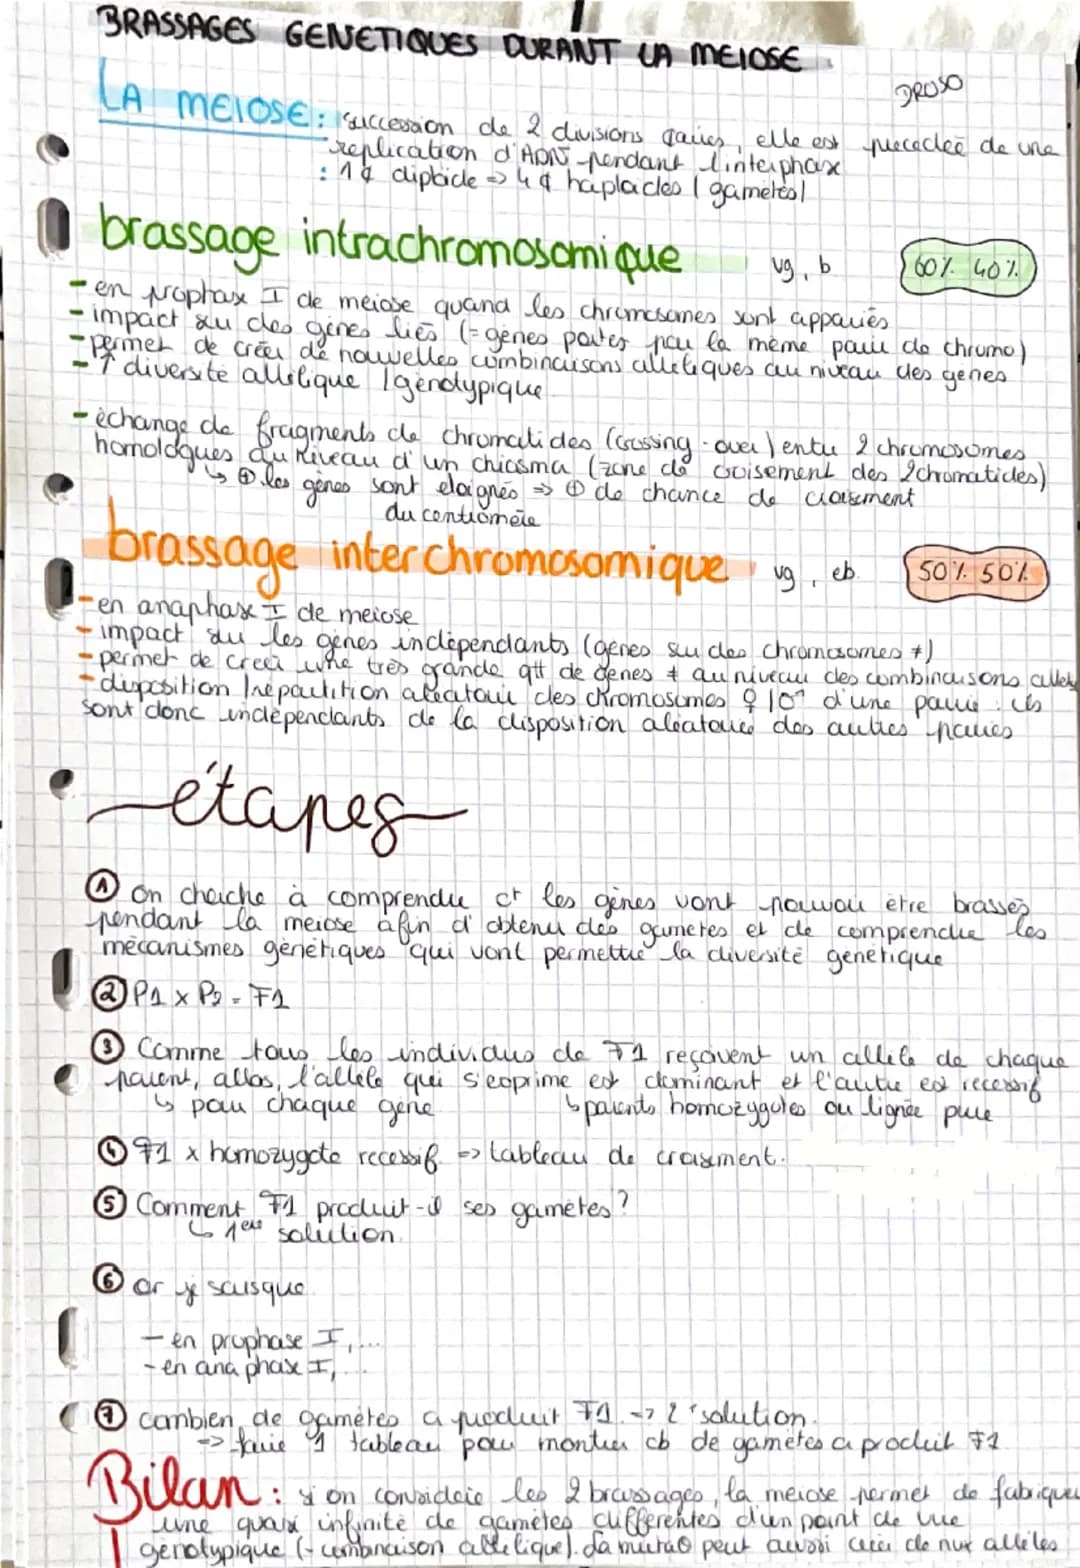 BRASSAGES GENETIQUES DURANT LA MEIOSE
DROSO
LA MEIOSE: succession de 2 divisions qui, elle est précédée de une
replication d'ADN pendant l'interphase
: 1 diploide => 4 haploides (gametes)
brassage intrachromosomique vg, b 60% 40%
- en prophase I de meiose quand les chromosomes sont appariés
- impact sur des gènes liés (= gènes portés par la même paire de chromo)
- permet de créer de nouvelles combinaisons alléliques au niveau des gènes
- ↑ diversité allélique / génotypique
- échange de fragments de chromatides (crossing-over) entre 2 chromosomes
homologues au niveau d'un chiasma (zone de croisement des 2 chromatides)
↳ ⊕ les gènes sont éloignés => ⊕ de chance de croisement
du centromère
brassage interchromosomique vg, eb. 50% 50%
- en anaphase I de meiose
- impact sur les gènes indépendants (gènes sur des chromosomes ≠)
- permet de créer une très grande qtt de gènes ≠ au niveau des combinaisons allel
- disposition / répartition aléatoire des chromosomes d'une paire : ils
sont donc indépendants de la disposition aléatoire des autres paires
étapes
① on cherche à comprendre ct les gènes vont pouvoir être brassés
pendant la meiose afin d'obtenu des gametes et de comprendre les
mécanismes génétiques qui vont permettre la diversité génétique
② P1 x P2 = F1
③ Comme tous les individus de F1 reçoivent un allèle de chaque
parent, alors, l'allèle qui s'exprime est dominant et l'autre est recessif
↳ pour chaque gène ↳ parents homozygotes ou lignée pure
④ F1 x homozygote recessif => tableau de croisement.
⑤ Comment F1 produit-il ses gamètes?
↳ 1ere solution.
⑥ or je sais que
- en prophase I, ...
- en anaphase I, ...
⑦ combien de gamètes a produit F1 -> 2 solution.
=> faire 1 tableau pour montrer cb de gamètes a produit F1
Bilan: si on considère les 2 brassages, la meiose permet de fabriquer
une quasi infinité de gamètes différentes d'un point de vue
génotypique (= combinaison allélique). La mutat° peut aussi créer de nvx allèles